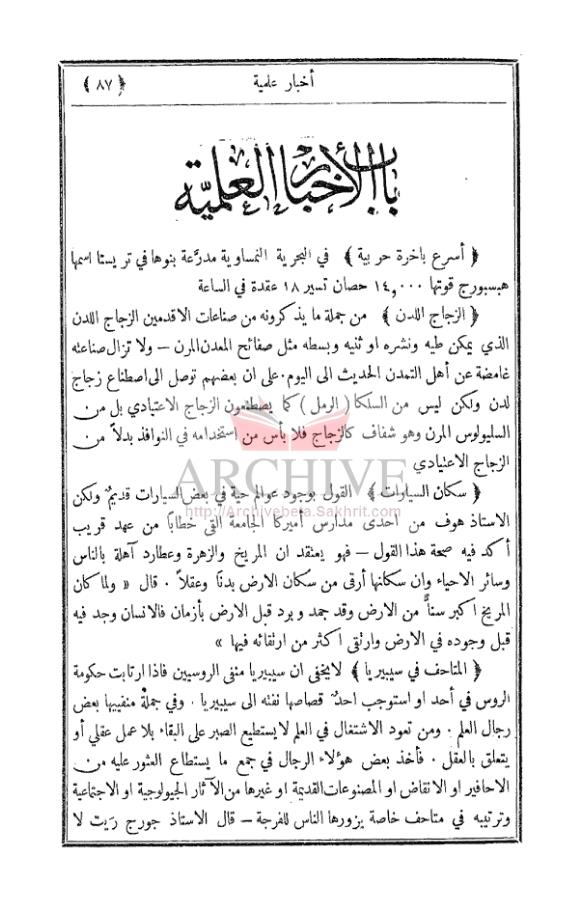 أخبار علمية
﴿ ٨٧ ﴾
باب الأخبار العلمية
﴿ أسرع باخرة حربية ﴾ في البحرية النمساوية مدرَّعة بنوها في تريستا اسمها
هبسبورج قوتها ١٤,٠٠٠ حصان تسير ١٨ عقدة في الساعة
﴿ الزجاج اللدن ﴾ من جملة ما يذكرونه من صناعات الاقدمين الزجاج اللدن
الذي يمكن طيه ونشره او ثنيه وبسطه مثل صفائح المعدن المرن — ولا تزال صناعته
غامضة عن أهل التمدن الحديث الى اليوم . على ان بعضهم توصل الى اصطناع زجاج
لدن ولكن ليس من السلكا ( الرمل ) كما يصطنعون الزجاج الاعتيادي بل من
السليولوس المرن وهو شفاف كالزجاج فلا بأس من استخدامه في النوافذ بدلاً من
الزجاج الاعتيادي
ARCHIVE
http://Archivebeta.Sakhrit.com
﴿ سكان السيارات ﴾ القول بوجود عوالم حية في بعض السيارات قديمٌ ولكن
الاستاذ هوف من احدى مدارس أميركا الجامعة القى خطاباً من عهد قريب
أكد فيه صحة هذا القول — فهو يعتقد ان المريخ والزهرة وعطارد آهلة بالناس
وسائر الاحياء وان سكانها أرقى من سكان الارض بدناً وعقلاً . قال « ولما كان
المريخ اكبر سناًّ من الارض وقد جمد وبرد قبل الارض بأزمان فالانسان وجد فيه
قبل وجوده في الارض وارتقى اكثر من ارتقائه فيها »
﴿ المتاحف في سيبيريا ﴾ لا يخفى ان سيبيريا منفى الروسيين فاذا ارتابت حكومة
الروس في أحد او استوجب احدٌ قصاصها نفته الى سيبيريا . وفي جملة منفييها بعض
رجال العلم . ومن تعود الاشتغال في العلم لا يستطيع الصبر على البقاء بلا عمل عقلي أو
يتعلق بالعقل . فأخذ بعض هؤلاء الرجال في جمع ما يستطاع العثور عليه من
الاحافير او الانقاض او المصنوعات القديمة او غيرها من الآثار الجيولوجية او الاجتماعية
وترتيبه في متاحف خاصة يزورها الناس للفرجة — قال الاستاذ جورج ريت لا